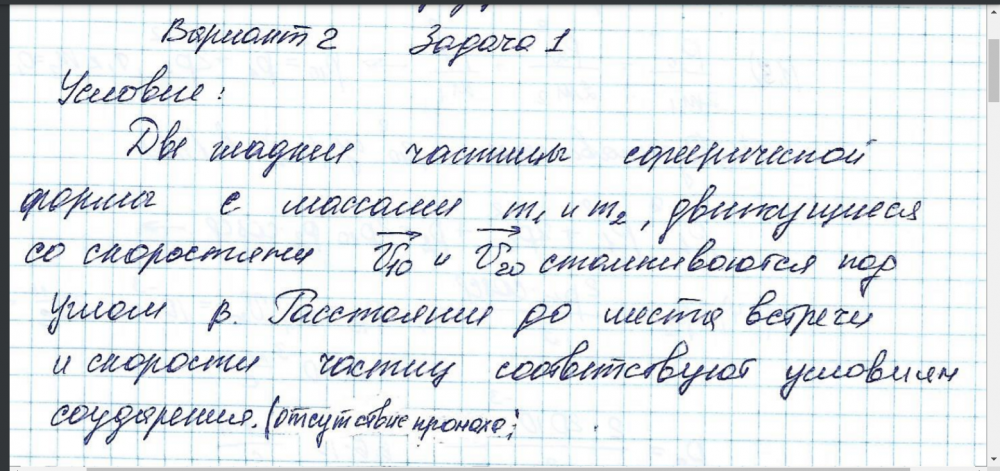 Вариант 2 Задача 1
Условие:
Две гладкие частицы сферической
формы с массами m₁ и m₂, движущиеся
со скоростями V₁₀ и V₂₀ сталкиваются под
углом β. Расстояние до места встречи
и скорости частиц соответствуют условиям
соударения. (отсутствие промаха;